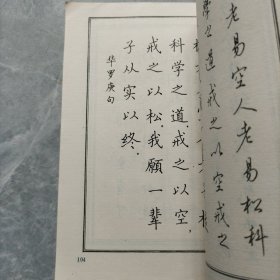 老易空人老易松科
学之道戒之以空戒之
科学之道，戒之以空，
戒之以松，我愿一辈
子从实以终。
华罗庚句
104